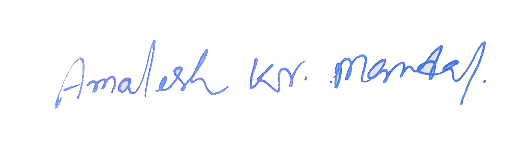 Amalesh Kr. Mandal.